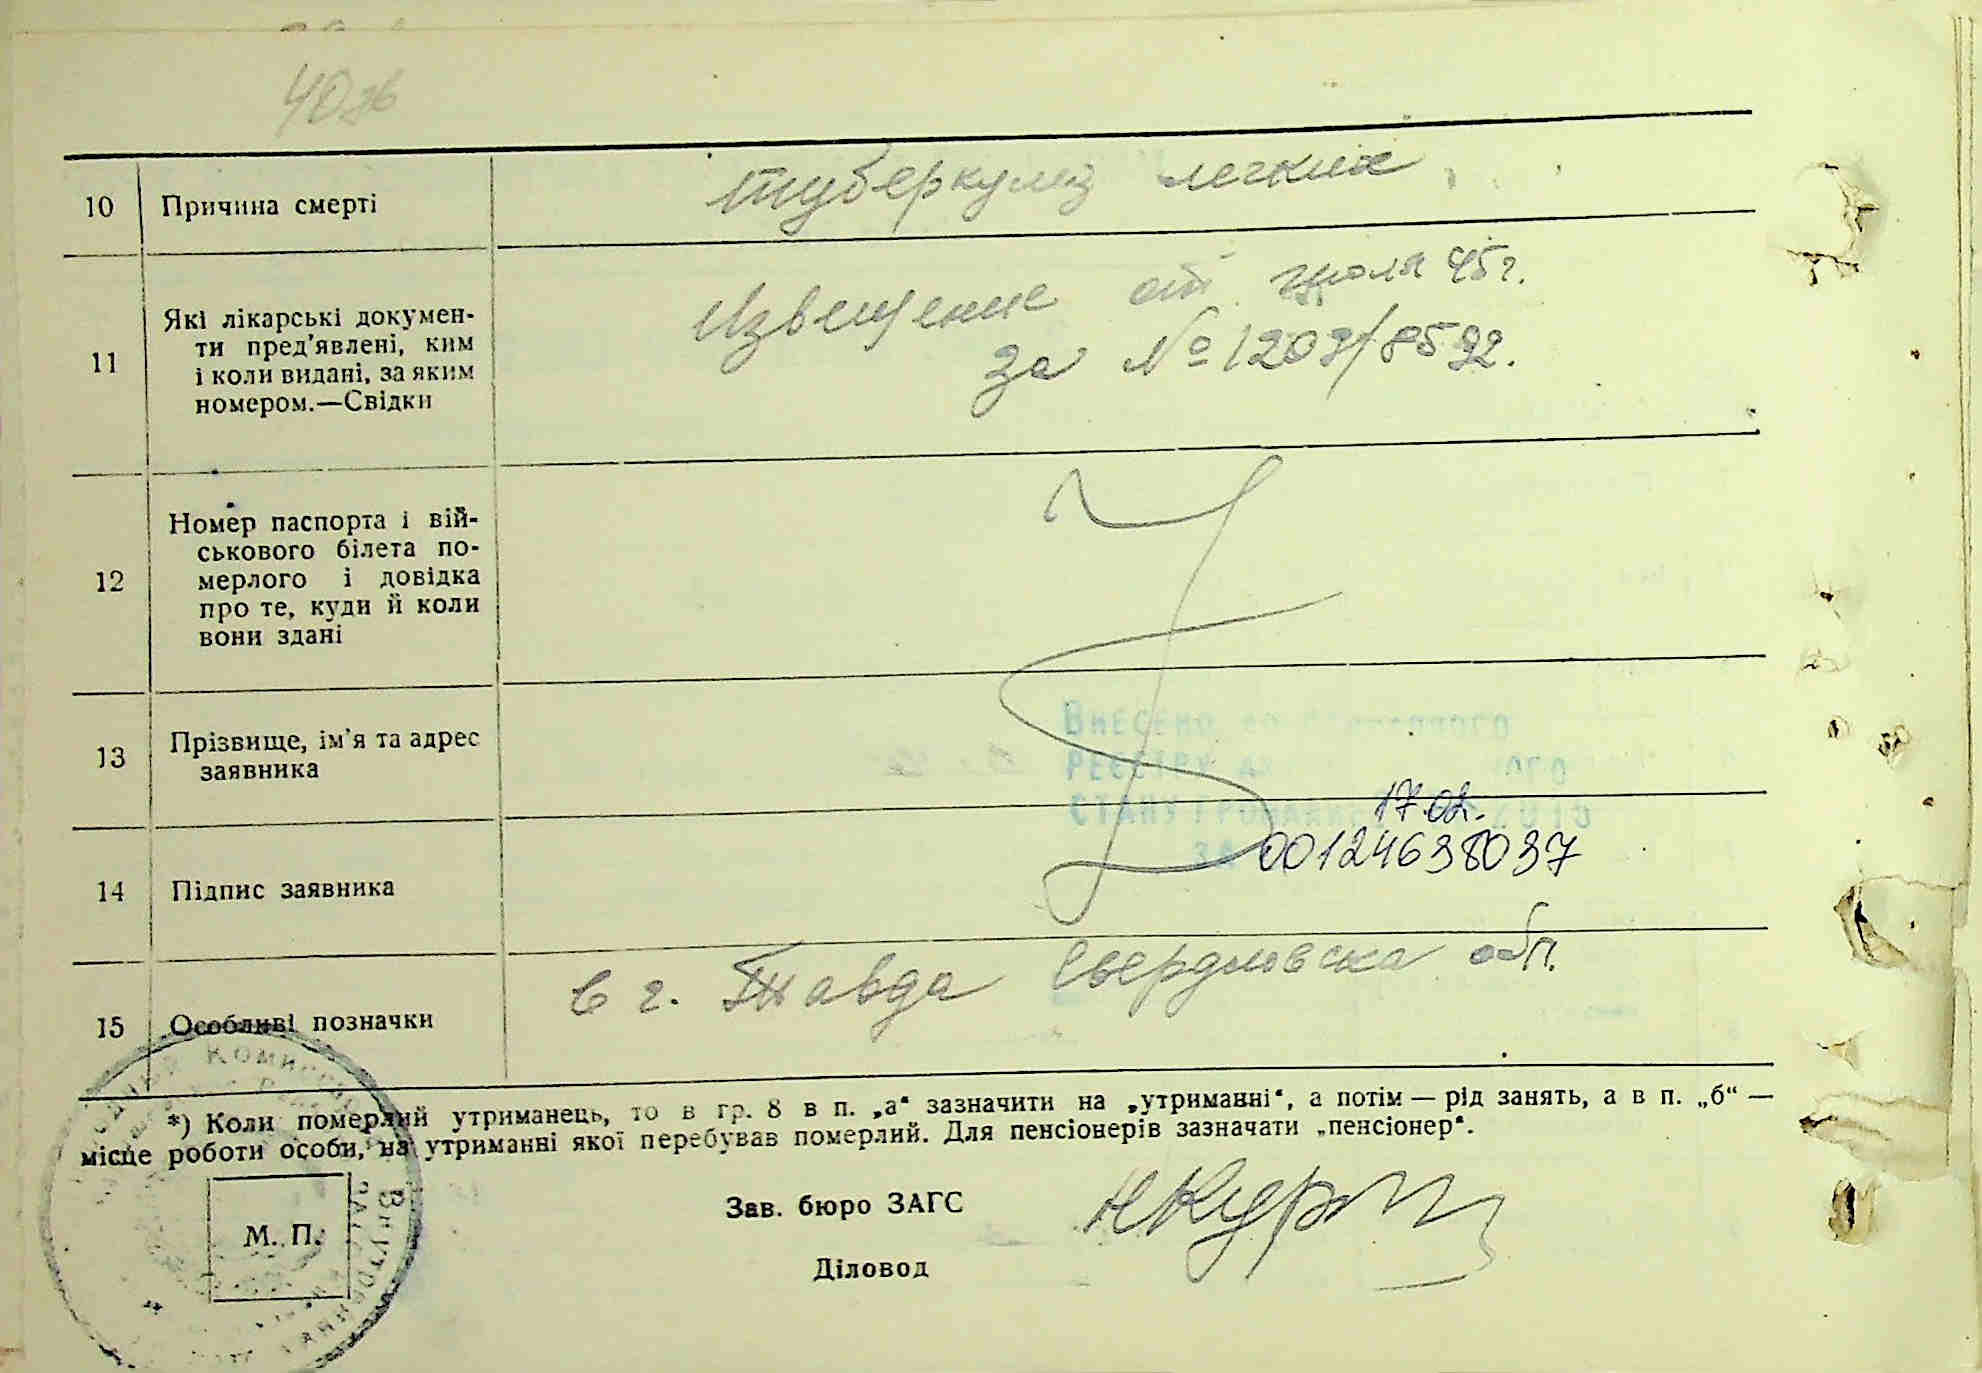 40 зв
10 Причина смерті
туберкулез легких
11 Які лікарські докумен-
ти пред'явлені, ким
і коли видані, за яким
номером.—Свідки
Извещение от июля 45 г.
за № 1203/8592.
12 Номер паспорта і вій-
ськового білета по-
мерлого і довідка
про те, куди й коли
вони здані
13 Прізвище, ім'я та адрес
заявника
Внесено до Державного
реєстру
стану громадян
17.02.
за 00124638037
14 Підпис заявника
15 Особливі позначки
в г. Тавда Свердловска обл.
*) Коли померлий утриманець, то в гр. 8 в п. „а“ зазначити на „утриманні“, а потім — рід занять, а в п. „б“ —
місце роботи особи, на утриманні якої перебував померлий. Для пенсіонерів зазначати „пенсіонер“.
М. П.
Зав. бюро ЗАГС
Діловод